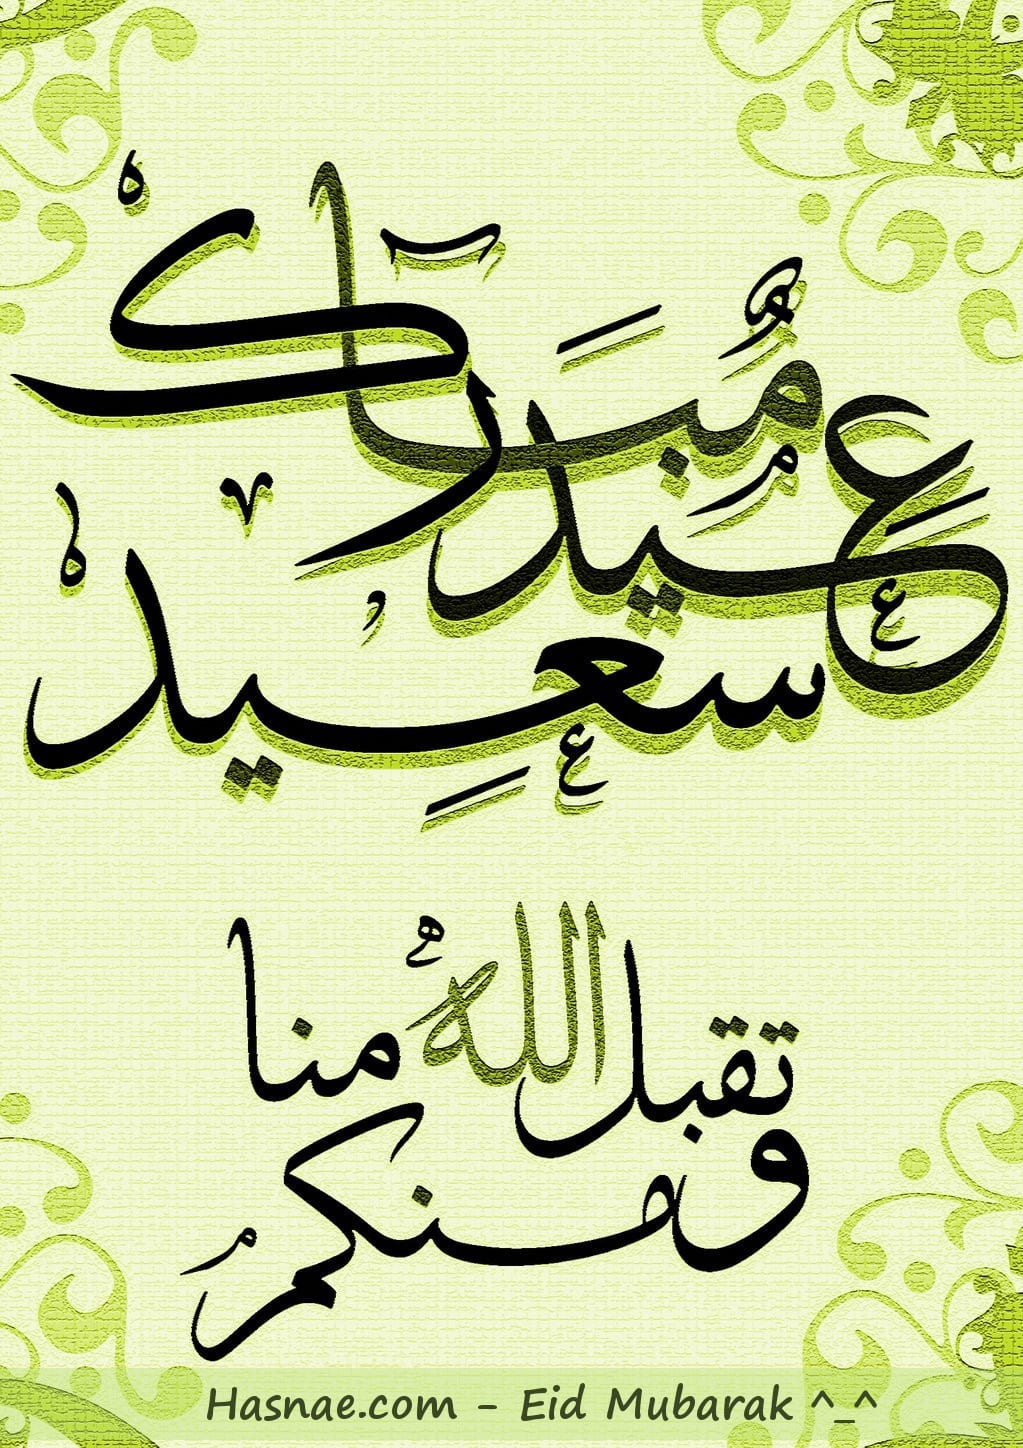 عيد مبرك
سعيد
تقبل الله منا
ومنكم
Hasnae.com - Eid Mubarak ^_^